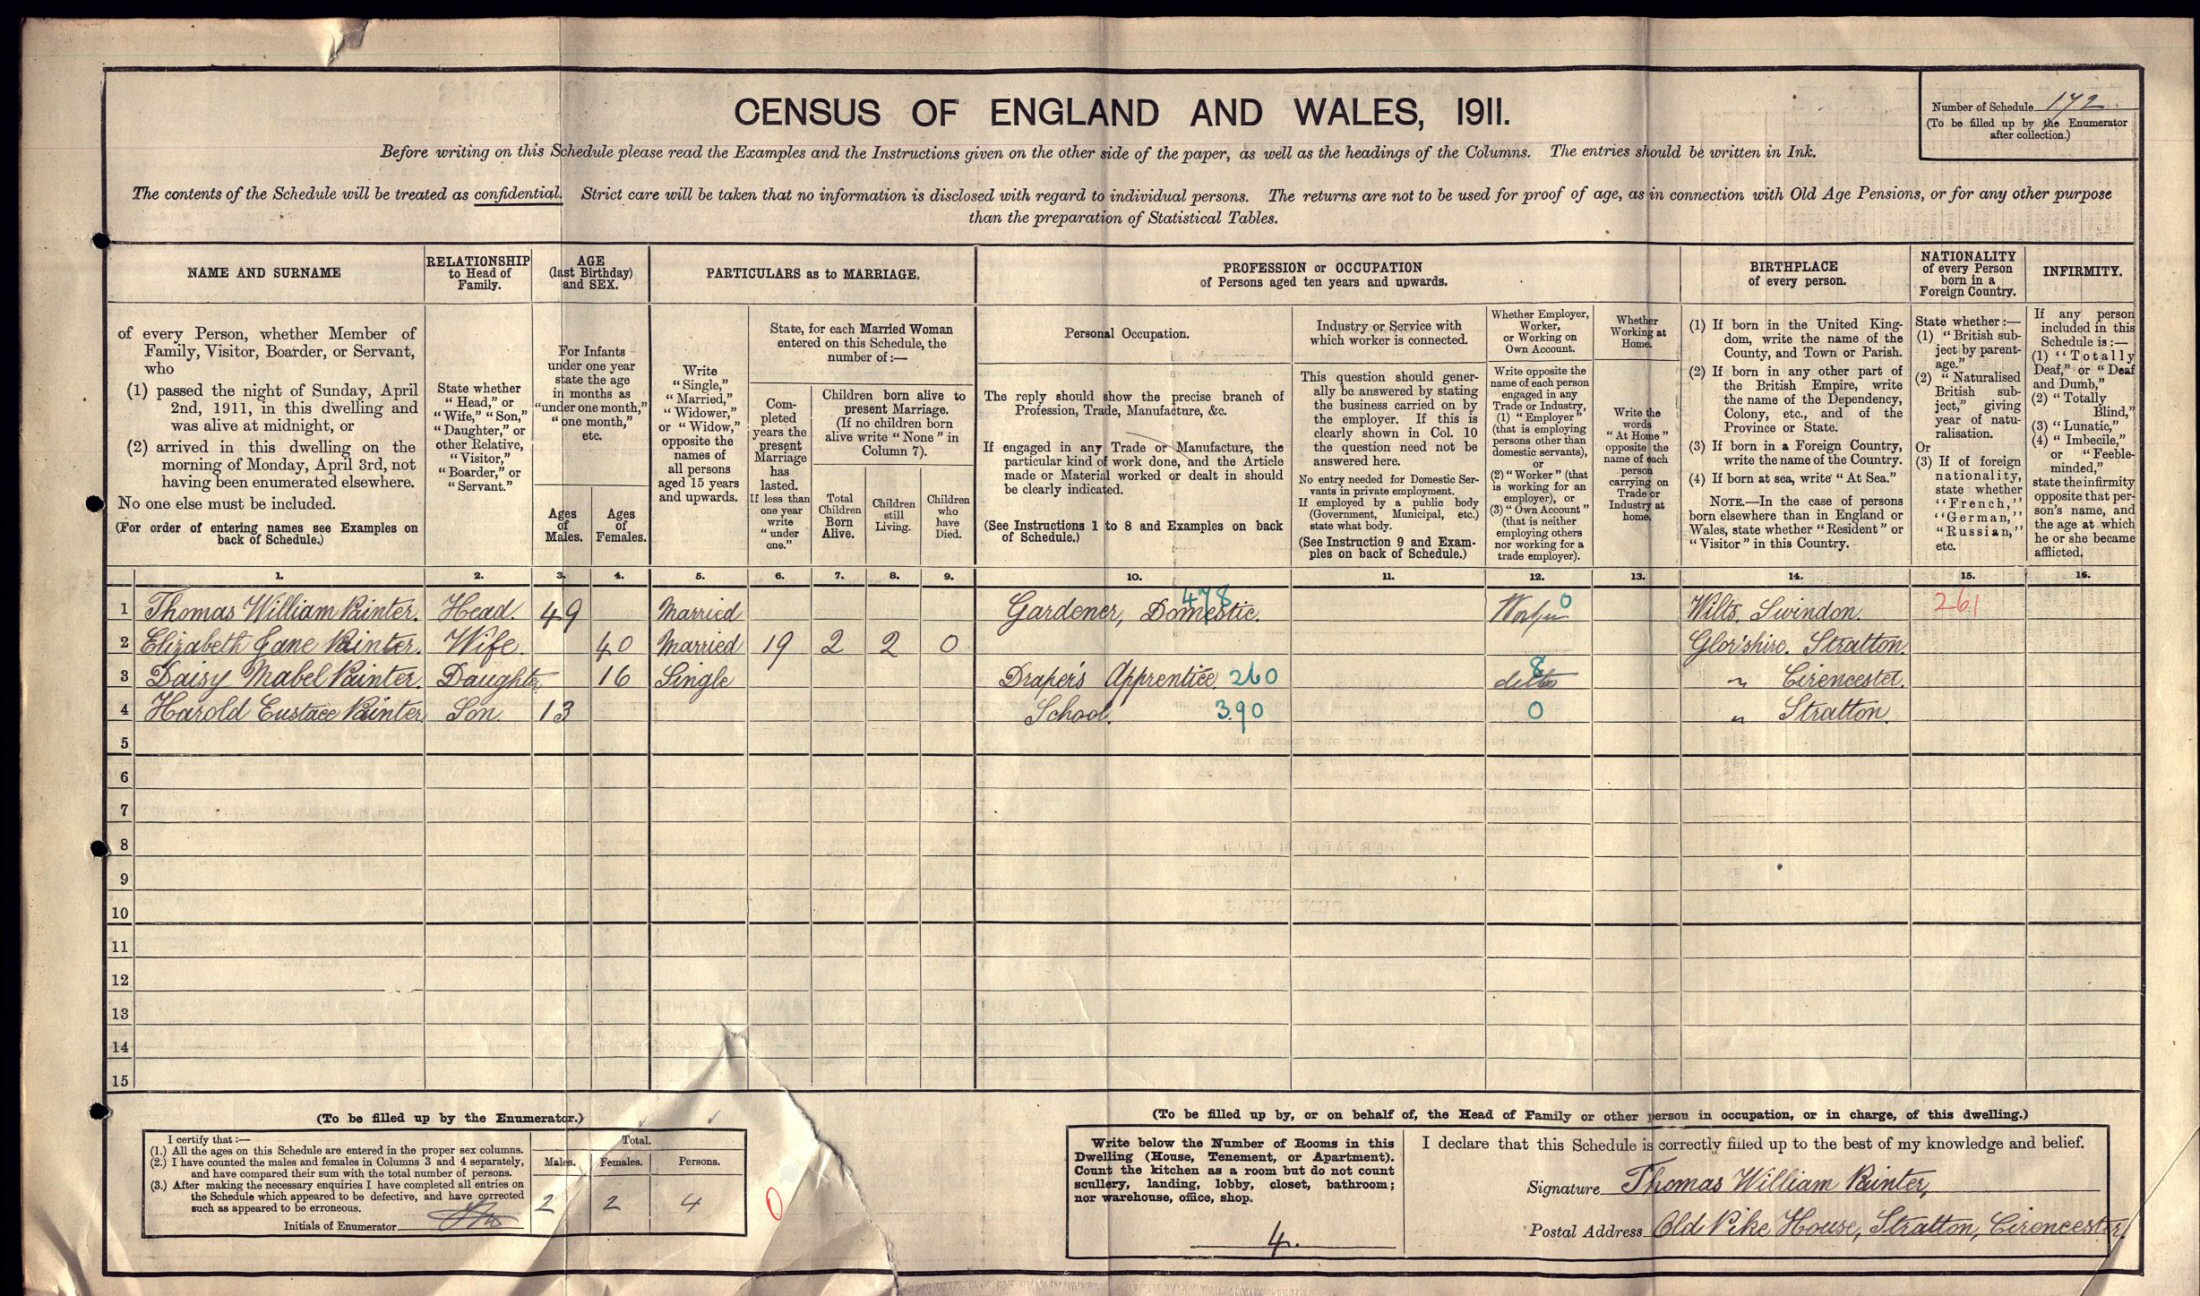 CENSUS OF ENGLAND AND WALES, 1911.
Number of Schedule 172
(To be filled up by the Enumerator
after collection.)
Before writing on this Schedule please read the Examples and the Instructions given on the other side of the paper, as well as the headings of the Columns. The entries should be written in Ink.
The contents of the Schedule will be treated as confidential. Strict care will be taken that no information is disclosed with regard to individual persons. The returns are not to be used for proof of age, as in connection with Old Age Pensions, or for any other purpose
than the preparation of Statistical Tables.
NAME AND SURNAME
of every Person, whether Member of
Family, Visitor, Boarder, or Servant,
who
(1) passed the night of Sunday, April
2nd, 1911, in this dwelling and
was alive at midnight, or
(2) arrived in this dwelling on the
morning of Monday, April 3rd, not
having been enumerated elsewhere.
No one else must be included.
(For order of entering names see Examples on
back of Schedule.)
RELATIONSHIP
to Head of
Family.
State whether
"Head," or
"Wife," "Son,"
"Daughter," or
other Relative,
"Visitor,"
"Boarder," or
"Servant."
AGE
(last Birthday)
and SEX.
For Infants
under one year
state the age
in months as
"under one month,"
"one month,"
etc.
Ages
of
Males.
Ages
of
Females.
PARTICULARS as to MARRIAGE.
Write
"Single,"
"Married,"
"Widower,"
or "Widow,"
opposite the
names of
all persons
aged 15 years
and upwards.
State, for each Married Woman
entered on this Schedule, the
number of:—
Com-
pleted
years the
present
Marriage
has
lasted.
If less than
one year
write
"under
one."
Children born alive to
present Marriage.
(If no children born
alive write "None" in
Column 7).
Total
Children
Born
Alive.
Children
still
Living.
Children
who
have
Died.
PROFESSION or OCCUPATION
of Persons aged ten years and upwards.
Personal Occupation.
The reply should show the precise branch of
Profession, Trade, Manufacture, &c.
If engaged in any Trade or Manufacture, the
particular kind of work done, and the Article
made or Material worked or dealt in should
be clearly indicated.
(See Instructions 1 to 8 and Examples on back
of Schedule.)
Industry or Service with
which worker is connected.
This question should gener-
ally be answered by stating
the business carried on by
the employer. If this is
clearly shown in Col. 10
the question need not be
answered here.
No entry needed for Domestic Ser-
vants in private employment.
If employed by a public body
(Government, Municipal, etc.)
state what body.
(See Instruction 9 and Exam-
ples on back of Schedule.)
Whether Employer,
Worker,
or Working on
Own Account.
Write opposite the
name of each person
engaged in any
Trade or Industry,
(1) "Employer"
(that is employing
persons other than
domestic servants),
or
(2) "Worker" (that
is working for an
employer), or
(3) "Own Account"
(that is neither
employing others
nor working for a
trade employer).
Whether
Working at
Home.
Write the
words
"At Home"
opposite the
name of each
person
carrying on
Trade or
Industry at
home.
BIRTHPLACE
of every person.
(1) If born in the United King-
dom, write the name of the
County, and Town or Parish.
(2) If born in any other part of
the British Empire, write
the name of the Dependency,
Colony, etc., and of the
Province or State.
(3) If born in a Foreign Country,
write the name of the Country.
(4) If born at sea, write "At Sea."
NOTE.—In the case of persons
born elsewhere than in England or
Wales, state whether "Resident" or
"Visitor" in this Country.
NATIONALITY
of every Person
born in a
Foreign Country.
State whether:—
(1) "British sub-
ject by parent-
age."
(2) "Naturalised
British sub-
ject," giving
year of natu-
ralisation.
Or
(3) If of foreign
nationality,
state whether
"French,"
"German,"
"Russian,"
etc.
INFIRMITY.
If any person
included in this
Schedule is:—
(1) "Totally
Deaf," or "Deaf
and Dumb,"
(2) "Totally
Blind,"
(3) "Lunatic,"
(4) "Imbecile,"
or "Feeble-
minded,"
state the infirmity
opposite that per-
son's name, and
the age at which
he or she became
afflicted.
1. 2. 3. 4. 5. 6. 7. 8. 9. 10. 11. 12. 13. 14. 15. 16.
1 Thomas William Painter. Head. 49 Married Gardener, Domestic. 478 Worker 0 Wilts. Swindon. 261
2 Elizabeth Jane Painter. Wife. 40 Married 19 2 2 0 Glor'shire. Stratton.
3 Daisy Mabel Painter. Daughter 16 Single Draper's Apprentice. 260 ditto 8 " Cirencester.
4 Harold Eustace Painter Son. 13 School. 390 0 " Stratton.
5
6
7
8
9
10
11
12
13
14
15
(To be filled up by the Enumerator.)
I certify that:—
(1.) All the ages on this Schedule are entered in the proper sex columns.
(2.) I have counted the males and females in Columns 3 and 4 separately,
and have compared their sum with the total number of persons.
(3.) After making the necessary enquiries I have completed all entries on
the Schedule which appeared to be defective, and have corrected
such as appeared to be erroneous.
Initials of Enumerator
Total.
Males. Females. Persons.
2 2 4
0
(To be filled up by, or on behalf of, the Head of Family or other person in occupation, or in charge, of this dwelling.)
Write below the Number of Rooms in this
Dwelling (House, Tenement, or Apartment).
Count the kitchen as a room but do not count
scullery, landing, lobby, closet, bathroom;
nor warehouse, office, shop.
4.
I declare that this Schedule is correctly filled up to the best of my knowledge and belief.
Signature Thomas William Painter,
Postal Address Old Pike House, Stratton, Cirencester.